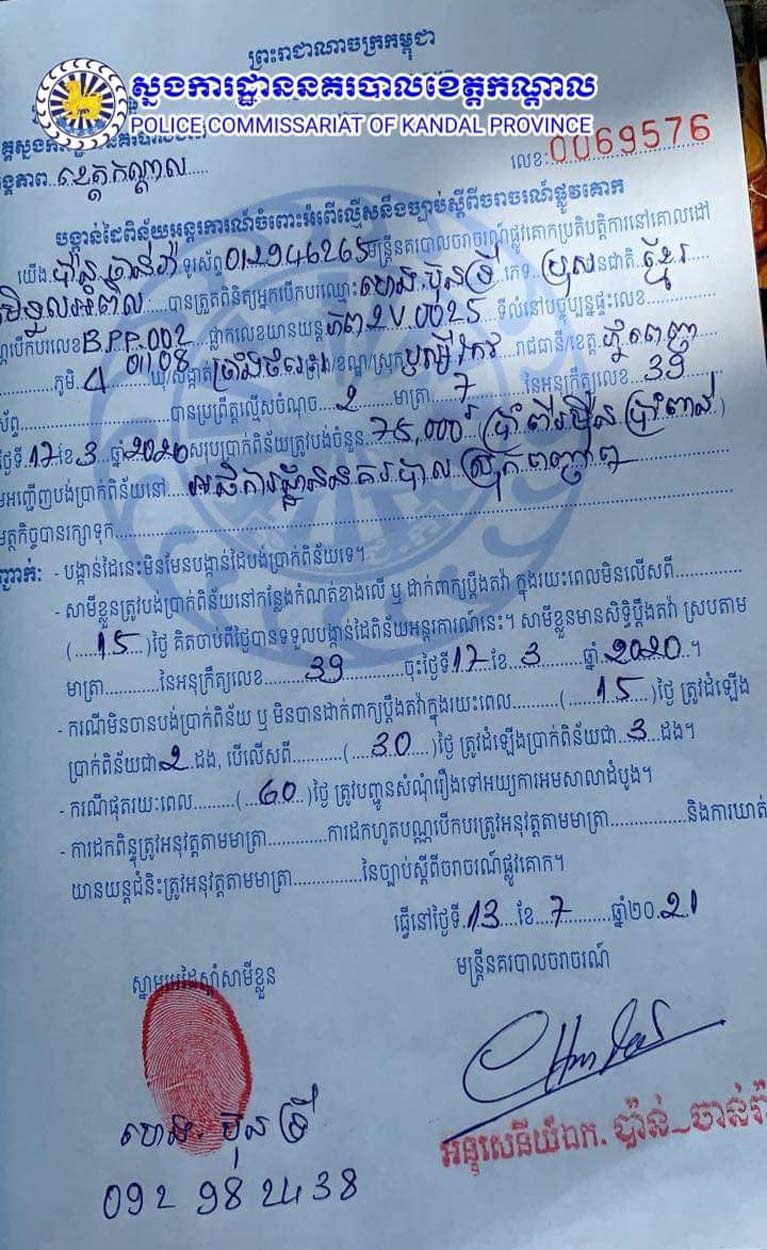 ព្រះរាជាណាចក្រកម្ពុជា
ស្នងការដ្ឋាននគរបាលខេត្តកណ្តាល
POLICE COMMISSARIAT OF KANDAL PROVINCE
ខេត្តកណ្តាល
លេខ:0069576
បង្កាន់ដៃពិន័យអន្តរការណ៍ចំពោះអំពើល្មើសនឹងច្បាប់ស្តីពីចរាចរណ៍ផ្លូវគោក
យើង ប៉ាន់ ចាន់រ៉ា ទូរស័ព្ទ 012946265 មន្ត្រីនគរបាលចរាចរណ៍ផ្លូវគោកប្រតិបត្តិការនៅគោលដៅ
បានត្រួតពិនិត្យអ្នកបើកបរឈ្មោះ ហេង ប៊ុនទ្រី ភេទ ប្រុស ជនជាតិ ខ្មែរ
បើកបរលេខ B.P.P.002 0108 ផ្លាកលេខយានយន្ត ភព 2V.0025 ទីលំនៅបច្ចុប្បន្នផ្ទះលេខ
ភូមិ 4 ឃុំ/សង្កាត់ ខណ្ឌ/ស្រុក ឫស្សីកែវ រាជធានី/ខេត្ត ភ្នំពេញ
បានប្រព្រឹត្តល្មើសចំណុច 2 មាត្រា 7 នៃអនុក្រឹត្យលេខ 39
ថ្ងៃទី 17 ខែ 3 ឆ្នាំ 2020 សរុបប្រាក់ពិន័យត្រូវបង់ចំនួន 75,000៛ ប្រាំពីរម៉ឺនប្រាំពាន់ )
អញ្ជើញបង់ប្រាក់ពិន័យនៅ អធិការដ្ឋាននគរបាលស្រុកពញ្ញាឮ
មត្ថកិច្ចបានរក្សាទុក
- បង្កាន់ដៃនេះមិនមែនបង្កាន់ដៃបង់ប្រាក់ពិន័យទេ។
- សាមីខ្លួនត្រូវបង់ប្រាក់ពិន័យនៅកន្លែងកំណត់ខាងលើ ឬ ដាក់ពាក្យប្តឹងតវ៉ា ក្នុងរយះពេលមិនលើសពី
( 15 )ថ្ងៃ គិតចាប់ពីថ្ងៃបានទទួលបង្កាន់ដៃពិន័យអន្តរការណ៍នេះ។ សាមីខ្លួនមានសិទ្ធិប្តឹងតវ៉ា ស្របតាម
មាត្រា នៃអនុក្រឹត្យលេខ 39 ចុះថ្ងៃទី 17 ខែ 3 ឆ្នាំ 2020 ។
- ករណីមិនបានបង់ប្រាក់ពិន័យ ឬ មិនបានដាក់ពាក្យប្តឹងតវ៉ាក្នុងរយះពេល ( 15 )ថ្ងៃ ត្រូវដំឡើង
ប្រាក់ពិន័យជា 2 ដង, បើលើសពី ( 30 )ថ្ងៃ ត្រូវដំឡើងប្រាក់ពិន័យជា 3 ដង។
- ករណីផុតរយះពេល ( 60 )ថ្ងៃ ត្រូវបញ្ជូនសំណុំរឿងទៅអយ្យការអមសាលាដំបូង។
- ការដកពិន្ទុត្រូវអនុវត្តតាមមាត្រា ការដកហូតបណ្ណបើកបរត្រូវអនុវត្តតាមមាត្រា និងការឃាត់
យានយន្តជំនិះត្រូវអនុវត្តតាមមាត្រា នៃច្បាប់ស្តីពីចរាចរណ៍ផ្លូវគោក។
ធ្វើនៅថ្ងៃទី 13 ខែ 7 ឆ្នាំ២០ 21
មន្ត្រីនគរបាលចរាចរណ៍
ស្នាមមេដៃស្តាំសាមីខ្លួន
ហេង ប៊ុនទ្រី
អនុសេនីយ៍ឯក. ប៉ាន់ ចាន់រ៉ា
092 98 24 38